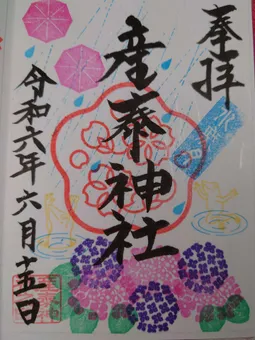 奉拝
水無月
産泰神社
令和六年六月十五日